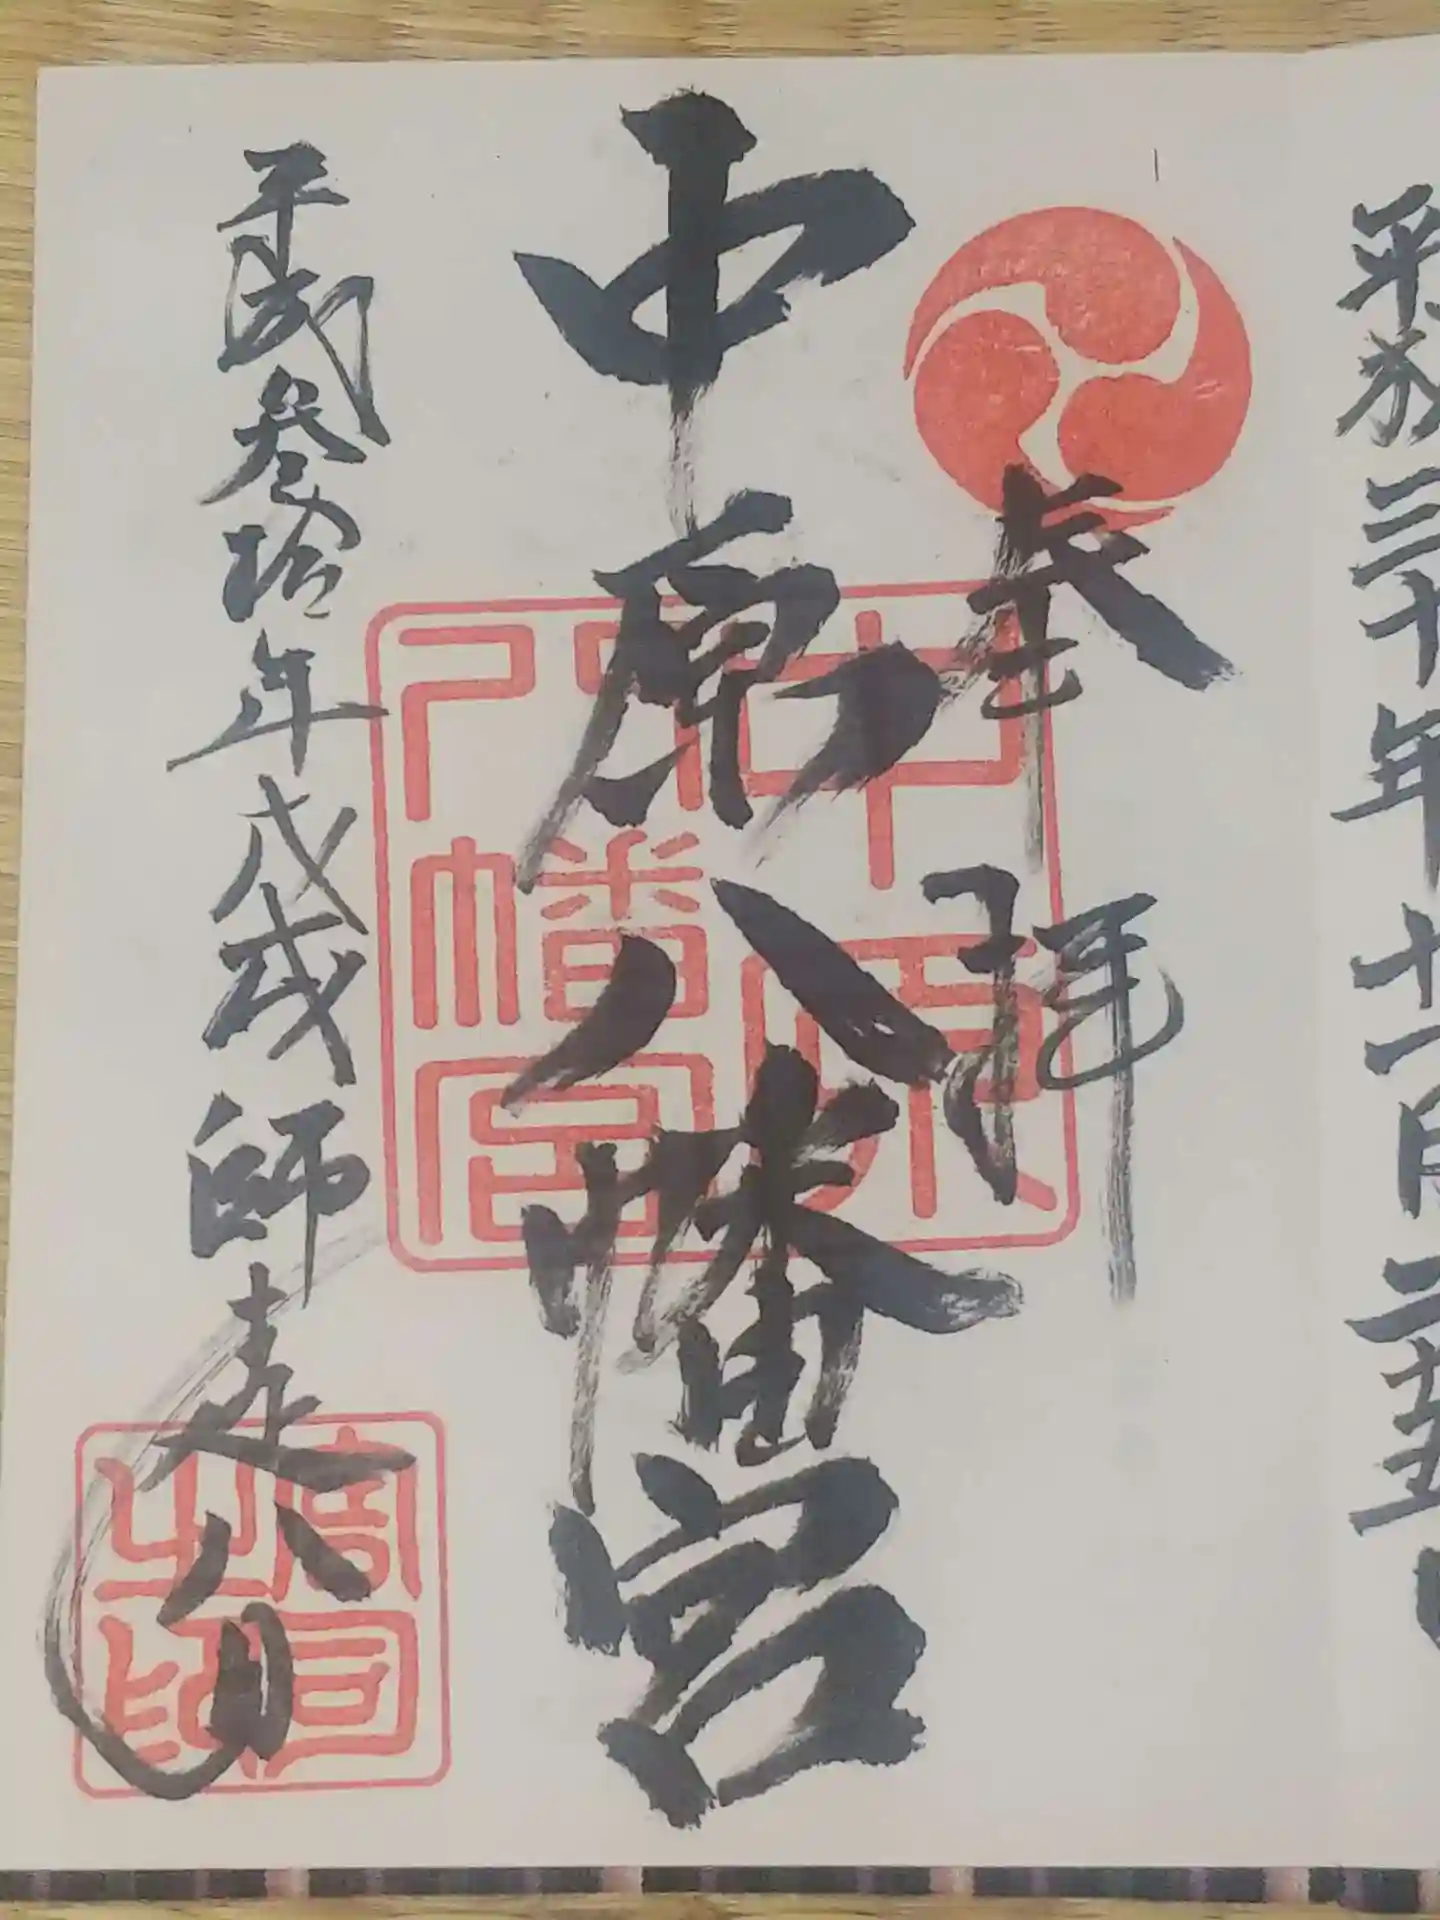 平成三十年十一月二十五日
奉拝
中原八幡宮
中原
八幡宮
平成叄拾年戊戌師走八日
宮司
之印